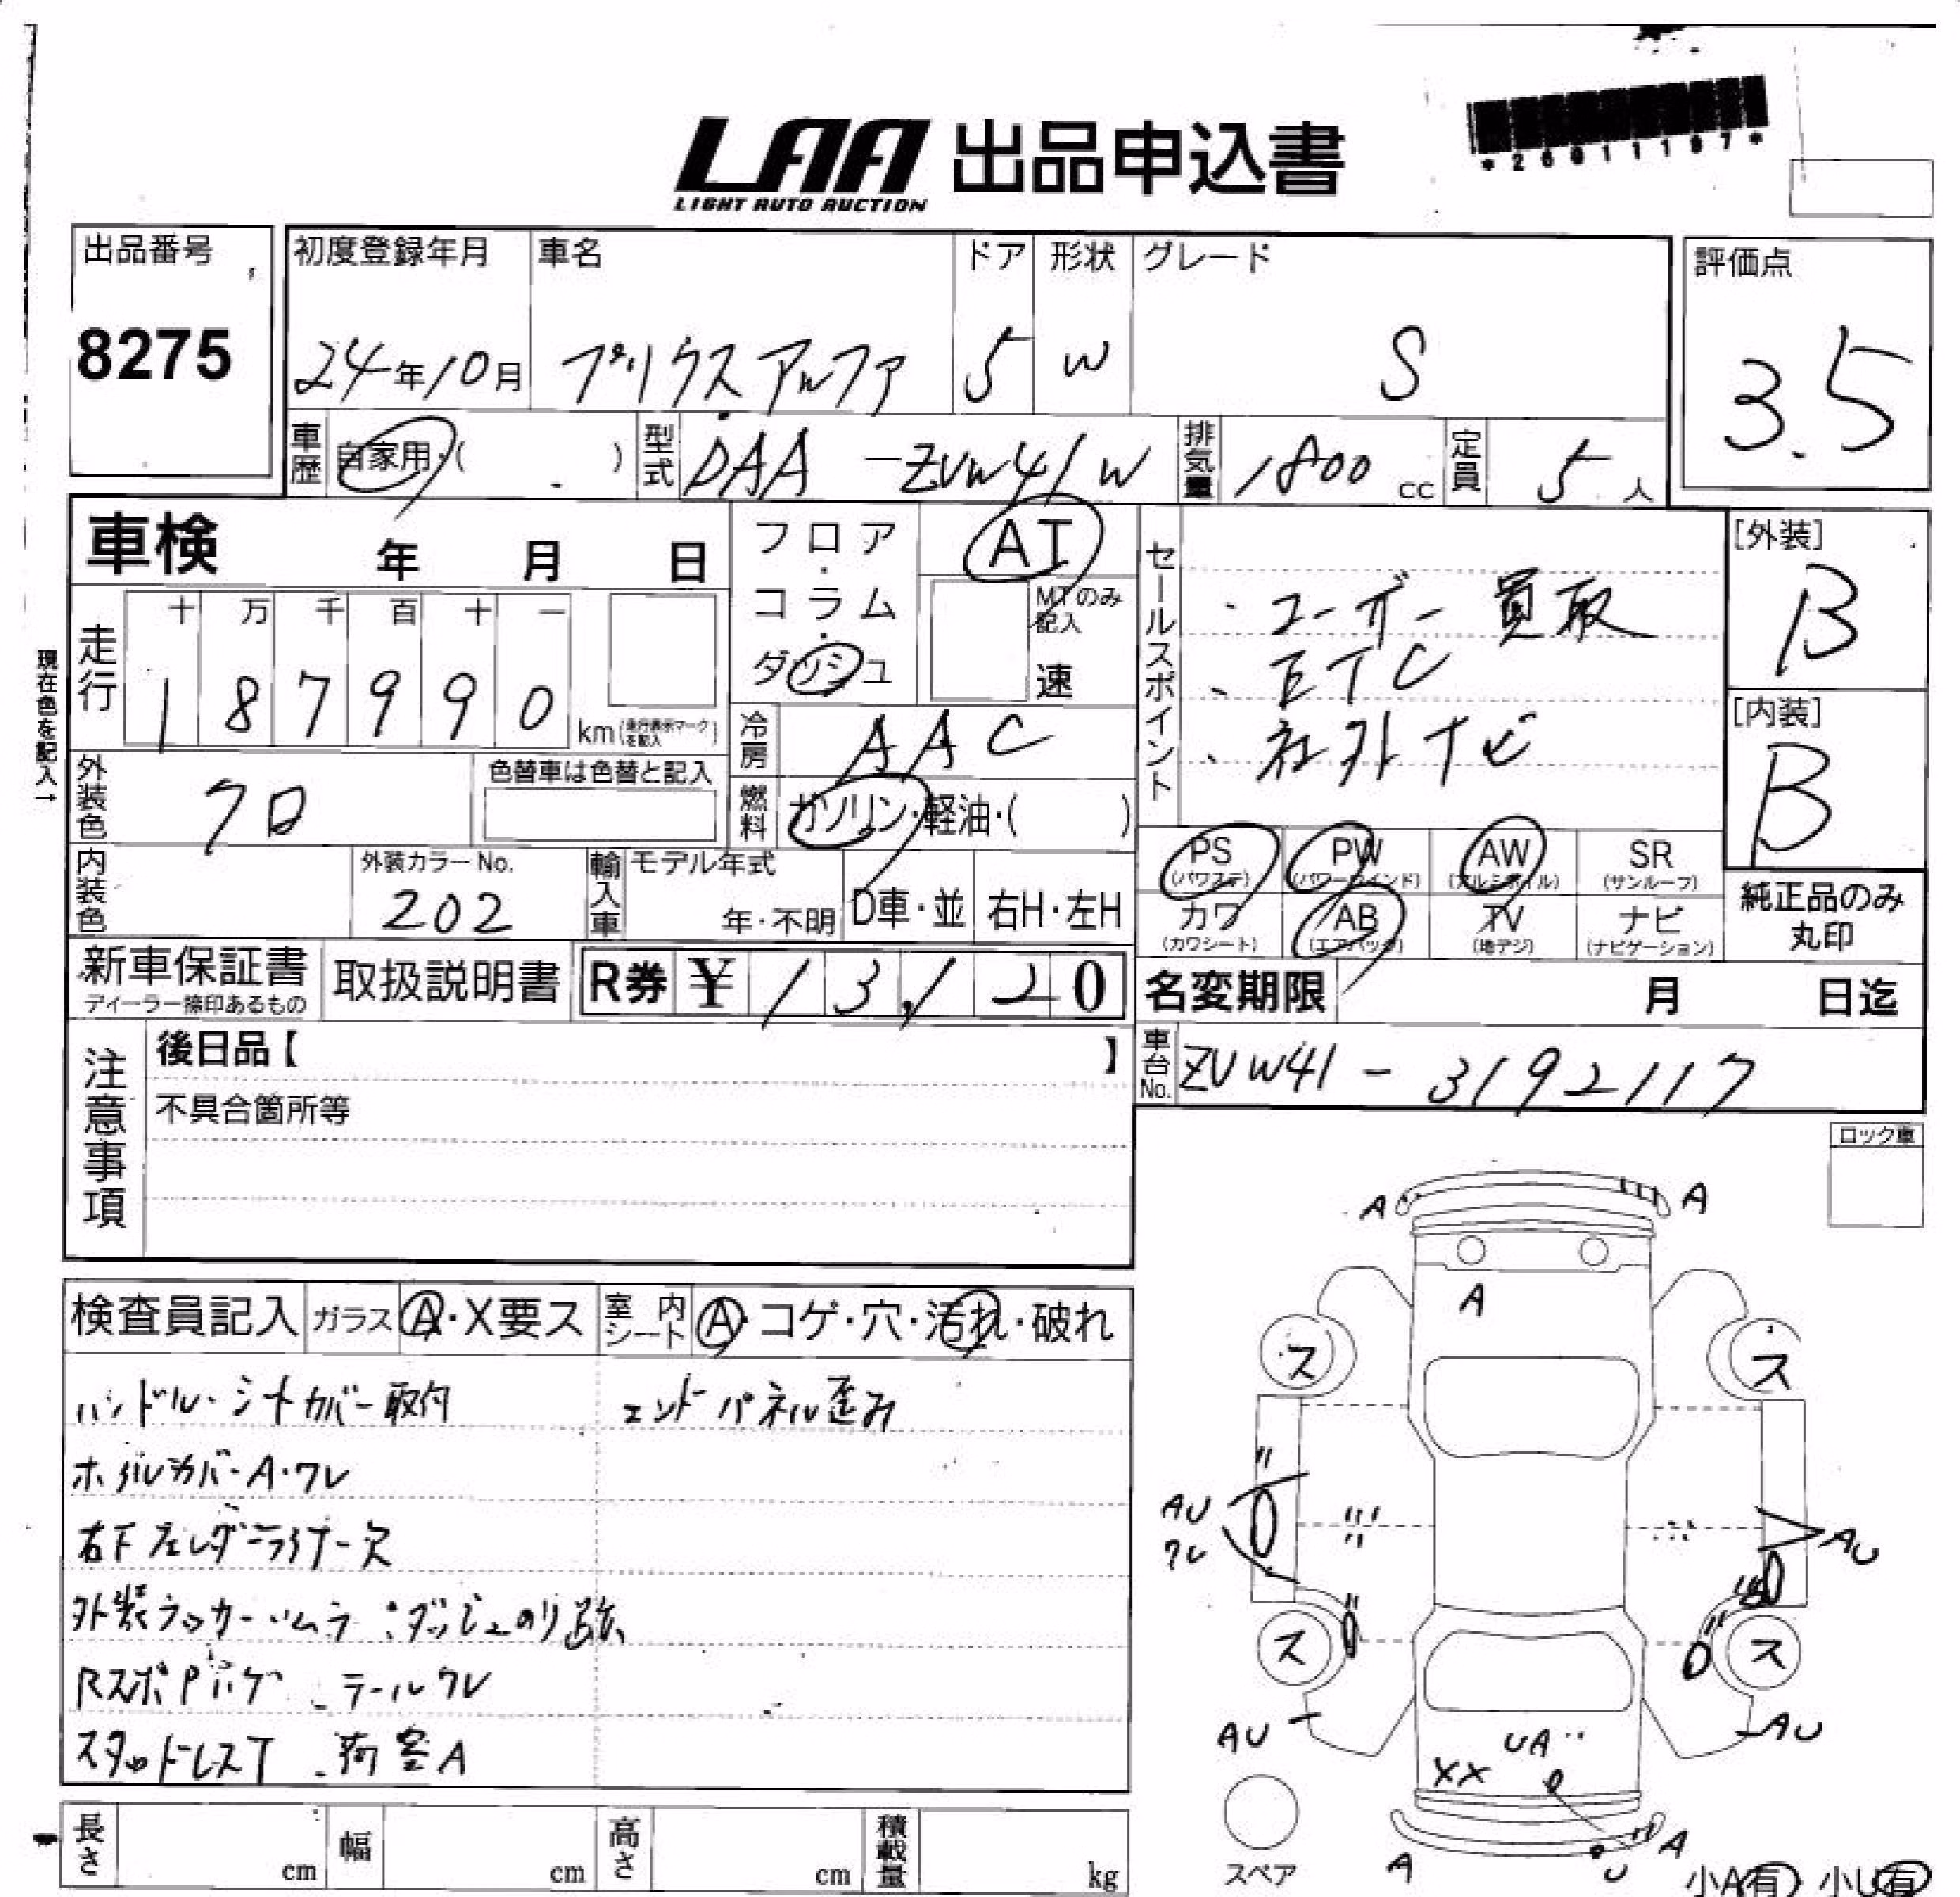 LAA 出品申込書
LIGHT AUTO AUCTION
*26011197*
出品番号
8275
初度登録年月 車名 ドア 形状 グレード
24年10月 プリウスアルファ 5 W S
評価点
3.5
車歴 自家用・( ) 型式 DAA-ZVW41W 排気量 1800 cc 定員 5人
車検 年 月 日
フロア・コラム・ダッシュ
AT
MTのみ記入
速
現在色を記入→
走行 十 万 千 百 十 一
1 8 7 9 9 0 km(走行表示マークを記入)
冷房 AAC
外装色 クロ
色替車は色替と記入
燃料 ガソリン・軽油・( )
内装色
外装カラーNo.
202
輸入車 モデル年式
年・不明 D車・並 右H・左H
セールスポイント
・ユーザー買取
・ETC
・社外ナビ
[外装]
B
[内装]
B
PS (パワステ) PW (パワーウインド) AW (アルミホイル) SR (サンルーフ)
カワ (カワシート) AB (エアバック) TV (地デジ) ナビ (ナビゲーション)
純正品のみ丸印
新車保証書
ディーラー捺印あるもの
取扱説明書
R券 ¥ 13,120
名変期限 月 日迄
車台No. ZVW41-3192117
注意事項
後日品【 】
不具合箇所等
ロック車
検査員記入 ガラス A・X要ス 室内シート A・コゲ・穴・汚れ・破れ
ハンドル・シートカバー取付 エンドパネル歪み
ホイルカバーA・ワレ
右フェンダーライナー欠
外装ラッカー・ムラ ・ダッシュのり跡
RスポPハゲ ・テールワレ
スタッドレスT ・荷室A
A A
A
ス ス
AU
ワレ
AU
ス ス
AU AU
UA
XX
A A
U
スペア
小A有 小U有
長さ cm 幅 cm 高さ cm 積載量 kg